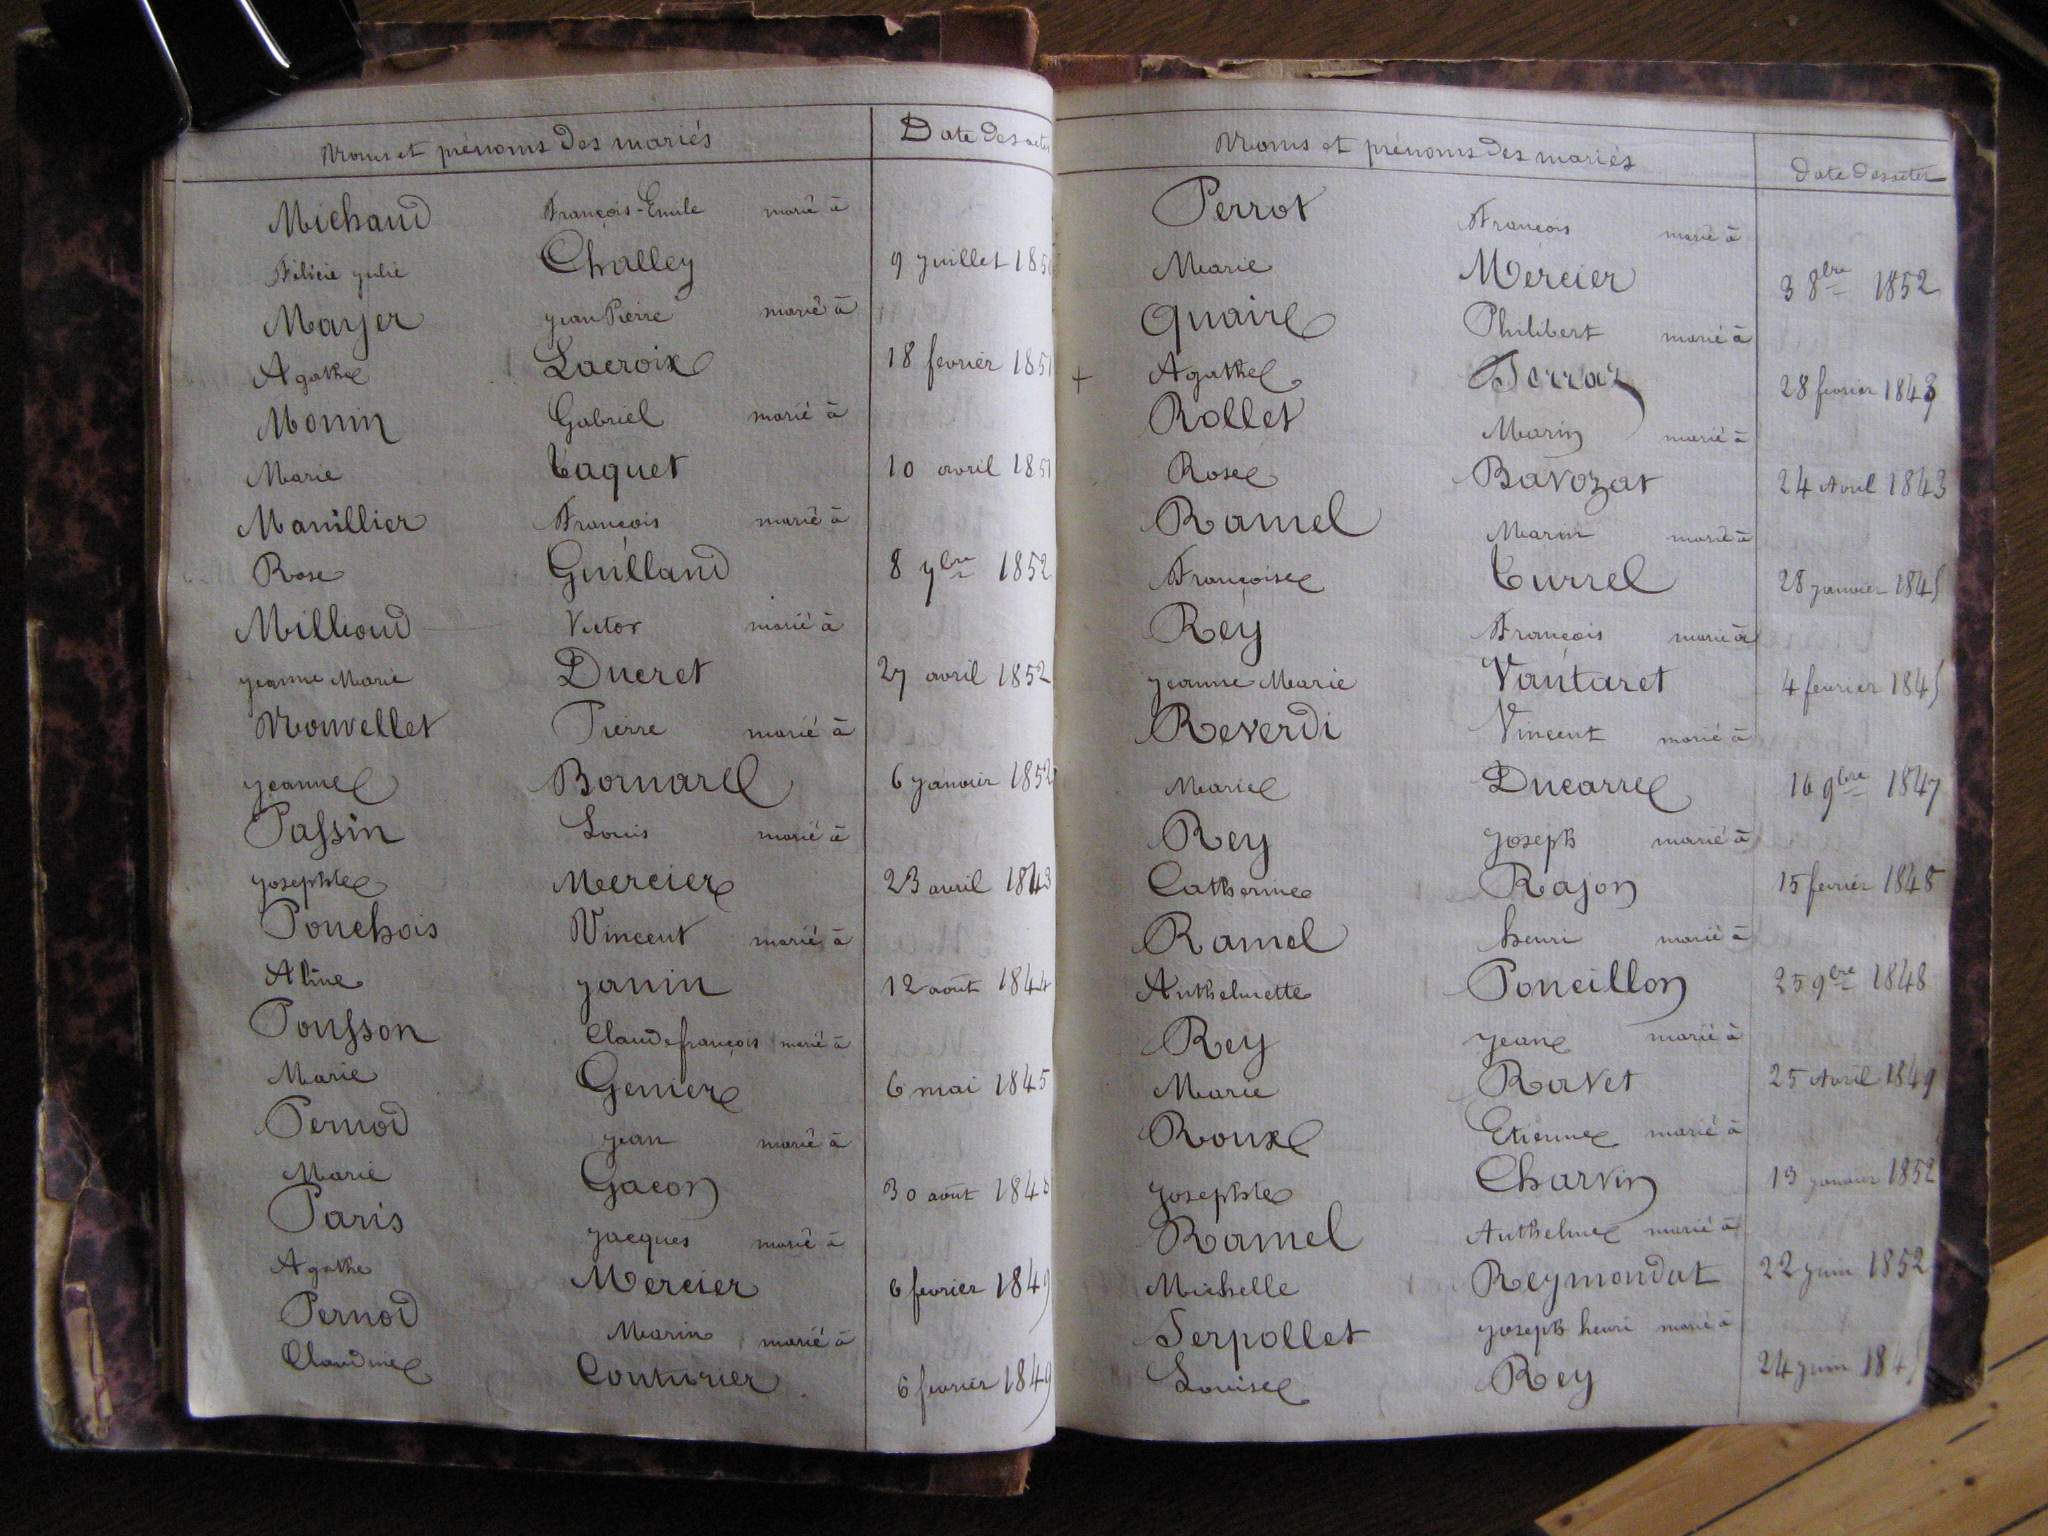 Noms et prénoms des mariés Date des actes
Michaud François-Emile marié à
Félicie Julie Challey 9 Juillet
Mayer Jean Pierre marié à
Agathe Lacroix 18 février 1851
Monin Gabriel marié à
Marie Taquet 10 avril 1851
Manillier François marié à
Rose Guilland 8 7bre 1852
Millioud Victor marié à
Jeanne Marie Ducret 27 avril 1852
Nouvellet Pierre marié à
Jeanne Bornarel 6 Janvier 1852
Passin Louis marié à
Josephte Mercier 23 avril 1843
Pouchois Vincent marié à
Aline Janin 12 août 1844
Pousson Claude françois marié à
Marie Genier 6 mai 1845
Pernod Jean marié à
Marie Gacon 30 août
Paris Jacques marié à
Agathe Mercier 6 février 1849
Pernod Marin marié à
Claudine Couturier 6 février 1849
Noms et prénoms des mariés Date des actes
Perrot François marié à
Marie Mercier 3 8bre 1852
Quaire Philibert marié à
+ Agathe 28 février
Rollet Marin marié à
Rose Bavozat 24 Avril 1843
Ramel Marin marié à
Françoise Turrel 28 Janvier 1845
Rey François marié à
Jeanne Marie Vautaret 4 février 1845
Reverdi Vincent marié à
Marie Ducarre 16 9bre 1847
Rey Joseph marié à
Catherine Rajon 15 février 1848
Ramel henri marié à
Anthelmette Poncillon 25 9bre 1848
Rey Jean marié à
Marie Ravet 25 Avril 1849
Roux Etienne marié à
Josephte Charvin 13 Janvier 1852
Ramel Anthelme marié à
Michelle Reymondat 22 Juin 1852
Serpollet Joseph henri marié à
Louise Rey 24 Juin